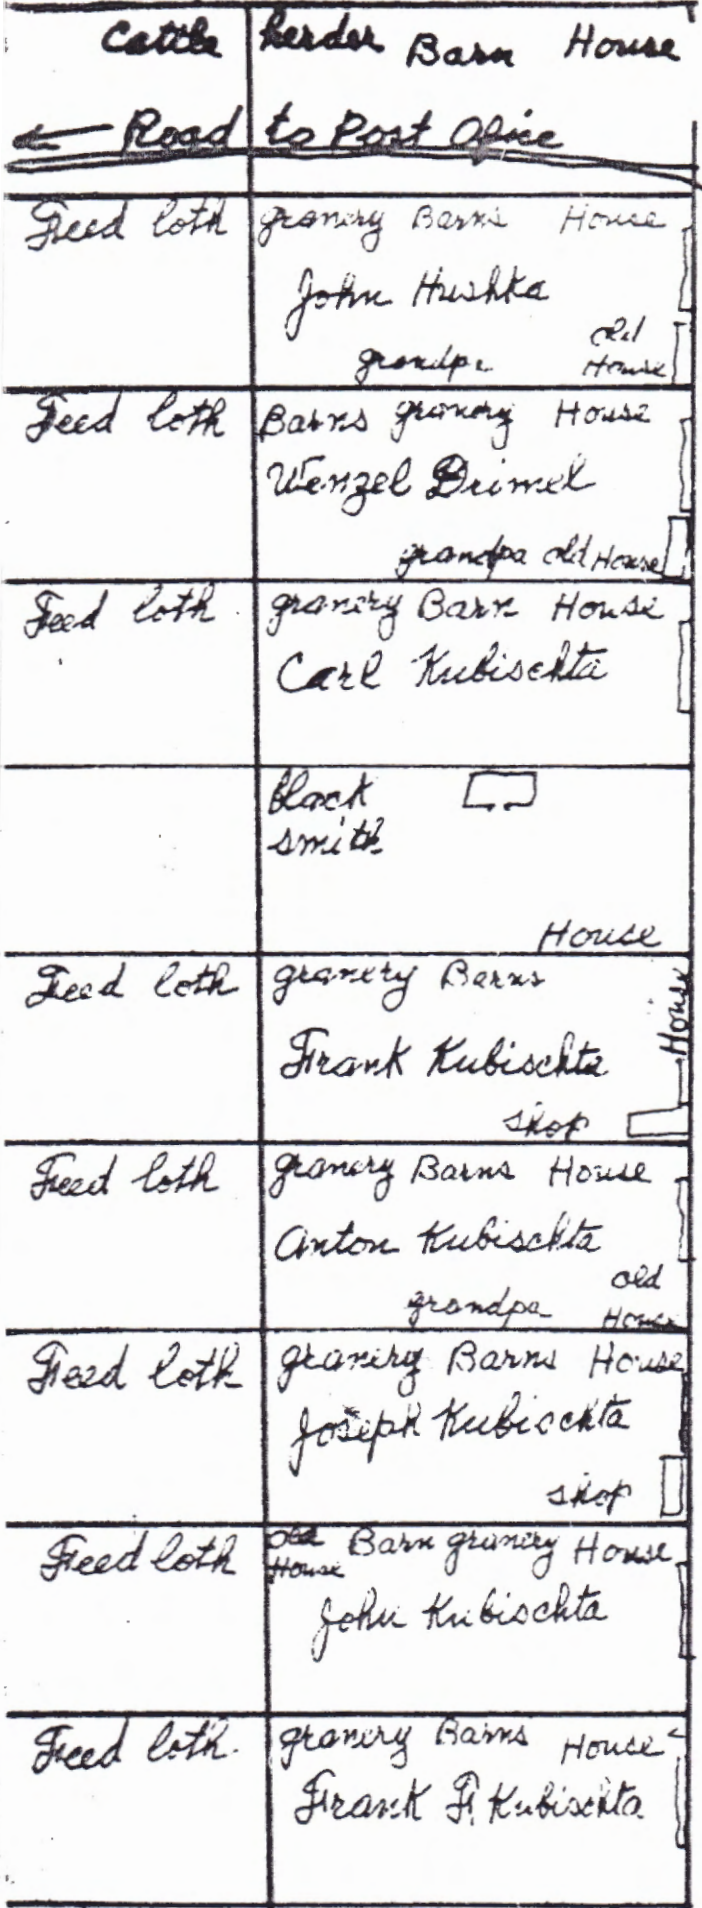 Cattle herder Barn House
← Road to Post Ofice
Feed loth granery Barns House
John Hushka
old
grandpa House
Feed loth Barns granery House
Wenzel Drimel
grandpa old House
Feed loth granery Barn House
Carl Kubischta
black
smith
House
Feed loth granery Barns
House
Frank Kubischta
shop
Feed loth granery Barns House
Anton Kubischta
old
grandpa House
Feed loth granery Barns House
Joseph Kubischta
shop
old
Feed loth House Barn granery House
John Kubischta
Feed loth. granery Barns House
Frank F. Kubischta